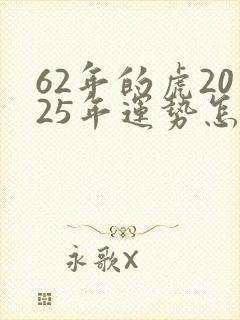 62年的虎20
25年運势怎
永歌X